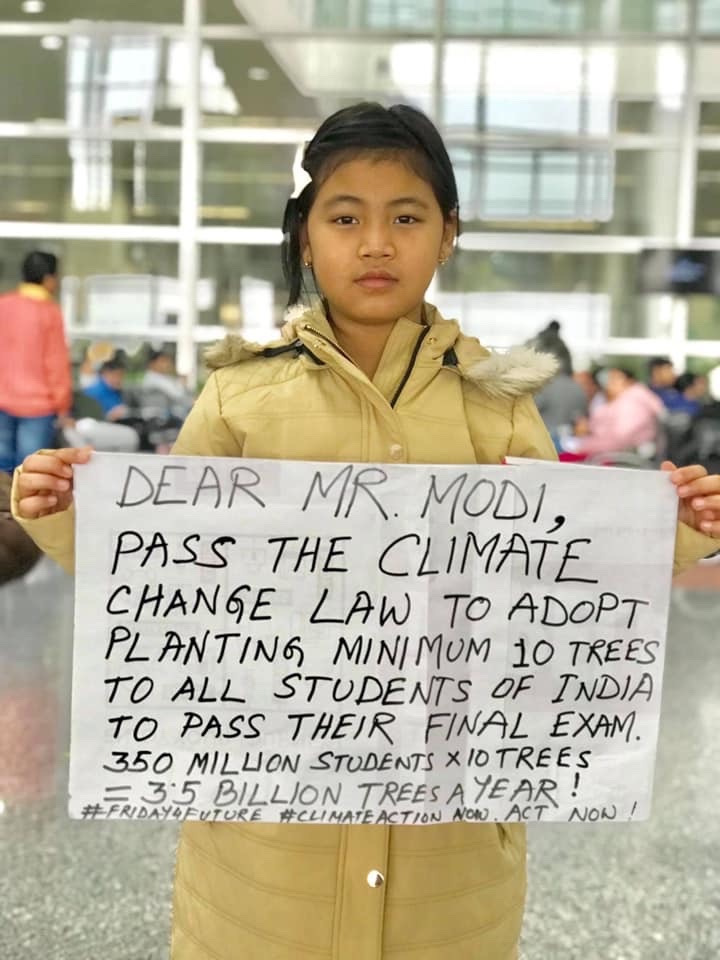 DEAR MR. MODI,
PASS THE CLIMATE
CHANGE LAW TO ADOPT
PLANTING MINIMUM 10 TREES
TO ALL STUDENTS OF INDIA
TO PASS THEIR FINAL EXAM.
350 MILLION STUDENTS X 10 TREES
= 3.5 BILLION TREES A YEAR!
#FRIDAY4FUTURE #CLIMATEACTION NOW. ACT NOW!